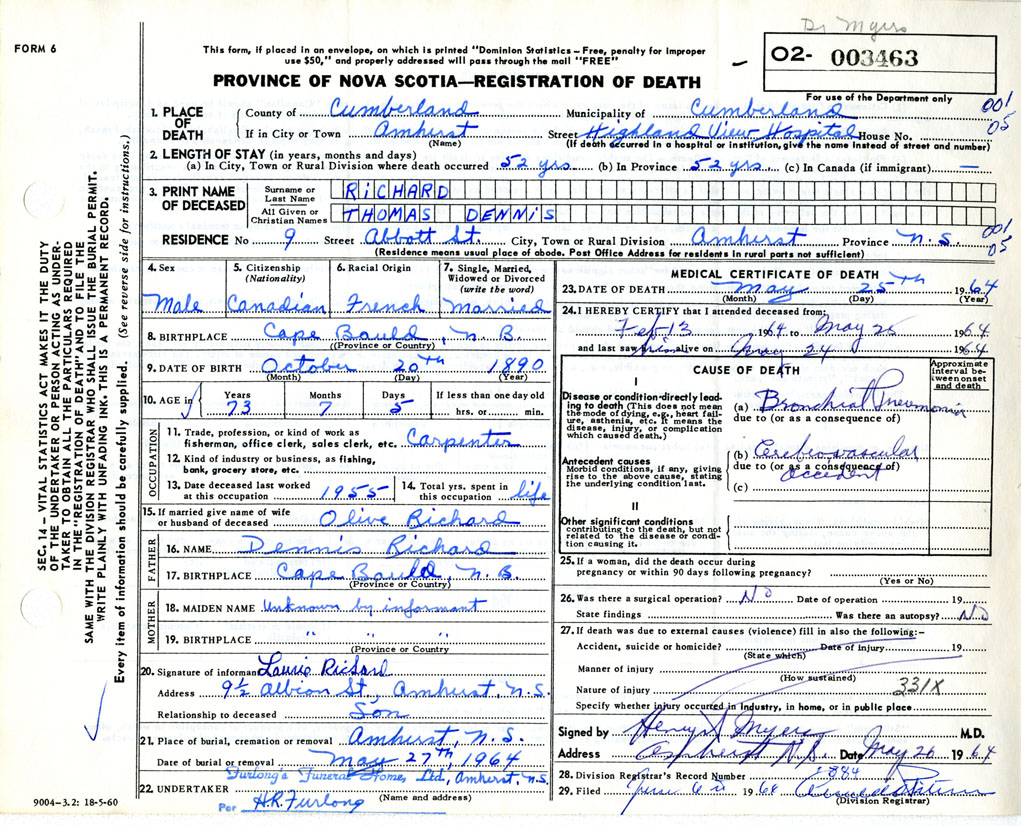 Dr Myers
FORM 6
This form, if placed in an envelope, on which is printed "Dominion Statistics – Free, penalty for improper
use $50," and properly addressed will pass through the mail "FREE"
O2- 003463
For use of the Department only
PROVINCE OF NOVA SCOTIA—REGISTRATION OF DEATH
001
05
1. PLACE OF DEATH { County of Cumberland Municipality of Cumberland
If in City or Town Amherst Street Highland View Hospital House No.
(Name) (If death occurred in a hospital or institution, give the name instead of street and number)
2. LENGTH OF STAY (in years, months and days)
(a) In City, Town or Rural Division where death occurred 52 yrs. (b) In Province 52 yrs. (c) In Canada (if immigrant) —
3. PRINT NAME OF DECEASED { Surname or Last Name RICHARD
All Given or Christian Names THOMAS DENNIS
RESIDENCE No 9 Street Abbott St. City, Town or Rural Division Amherst Province N.S.
001
05
(Residence means usual place of abode. Post Office Address for residents in rural parts not sufficient)
4. Sex Male
5. Citizenship (Nationality) Canadian
6. Racial Origin French
7. Single, Married, Widowed or Divorced (write the word) Married
8. BIRTHPLACE Cape Bauld, N.B.
(Province or Country)
9. DATE OF BIRTH October 20TH 1890
(Month) (Day) (Year)
10. AGE in Years 73 Months 7 Days 5 If less than one day old
hrs. or min.
OCCUPATION
11. Trade, profession, or kind of work as
fisherman, office clerk, sales clerk, etc. Carpenter
12. Kind of industry or business, as fishing,
bank, grocery store, etc.
13. Date deceased last worked
at this occupation 1955
14. Total yrs. spent in
this occupation life
15. If married give name of wife
or husband of deceased Olive Richard
FATHER
16. NAME Dennis Richard
17. BIRTHPLACE Cape Bauld, N.B.
(Province or Country)
MOTHER
18. MAIDEN NAME Unknown by informant
19. BIRTHPLACE " " "
(Province or Country
20. Signature of informant Laurie Richard
Address 9½ Albion St, Amherst, N.S.
Relationship to deceased Son
21. Place of burial, cremation or removal Amherst, N.S.
Date of burial or removal May 27TH, 1964
Furlong's Funeral Home, Ltd, Amherst, N.S.
22. UNDERTAKER
(Name and address)
Per H.R. Furlong
9004-3.2: 18-5-60
MEDICAL CERTIFICATE OF DEATH
23. DATE OF DEATH May 25TH 1964
(Month) (Day) (Year)
24. I HEREBY CERTIFY that I attended deceased from:
Feb 13 1964 to May 25 1964
and last saw him alive on May 24 1964
CAUSE OF DEATH
Approximate interval between onset and death
I
Disease or condition directly leading to death (This does not mean the mode of dying, e.g., heart failure, asthenia, etc. It means the disease, injury, or complication which caused death.)
(a) Bronchial Pneumonia
due to (or as a consequence of)
Antecedent causes
Morbid conditions, if any, giving rise to the above cause, stating the underlying condition last.
(b) Cerebrovascular
due to (or as a consequence of)
accident
(c)
II
Other significant conditions
contributing to the death, but not related to the disease or condition causing it.
25. If a woman, did the death occur during
pregnancy or within 90 days following pregnancy?
(Yes or No)
26. Was there a surgical operation? No Date of operation 19
State findings Was there an autopsy? No
27. If death was due to external causes (violence) fill in also the following:–
Accident, suicide or homicide? Date of injury 19
(State which)
Manner of injury
(How sustained)
Nature of injury 331X
Specify whether injury occurred in industry, in home, or in public place
Signed by Henry S Myers M.D.
Address Amherst N.S. Date May 26 1964
28. Division Registrar's Record Number 1384
29. Filed June 1964
(Division Registrar)
SEC. 14 – VITAL STATISTICS ACT MAKES IT THE DUTY
OF THE UNDERTAKER OR PERSON ACTING AS UNDER-
TAKER TO OBTAIN ALL THE PARTICULARS REQUIRED
IN THE "REGISTRATION OF DEATH" AND TO FILE THE
SAME WITH THE DIVISION REGISTRAR WHO SHALL ISSUE THE BURIAL PERMIT.
WRITE PLAINLY WITH UNFADING INK. THIS IS A PERMANENT RECORD.
Every item of information should be carefully supplied. (See reverse side for instructions.)